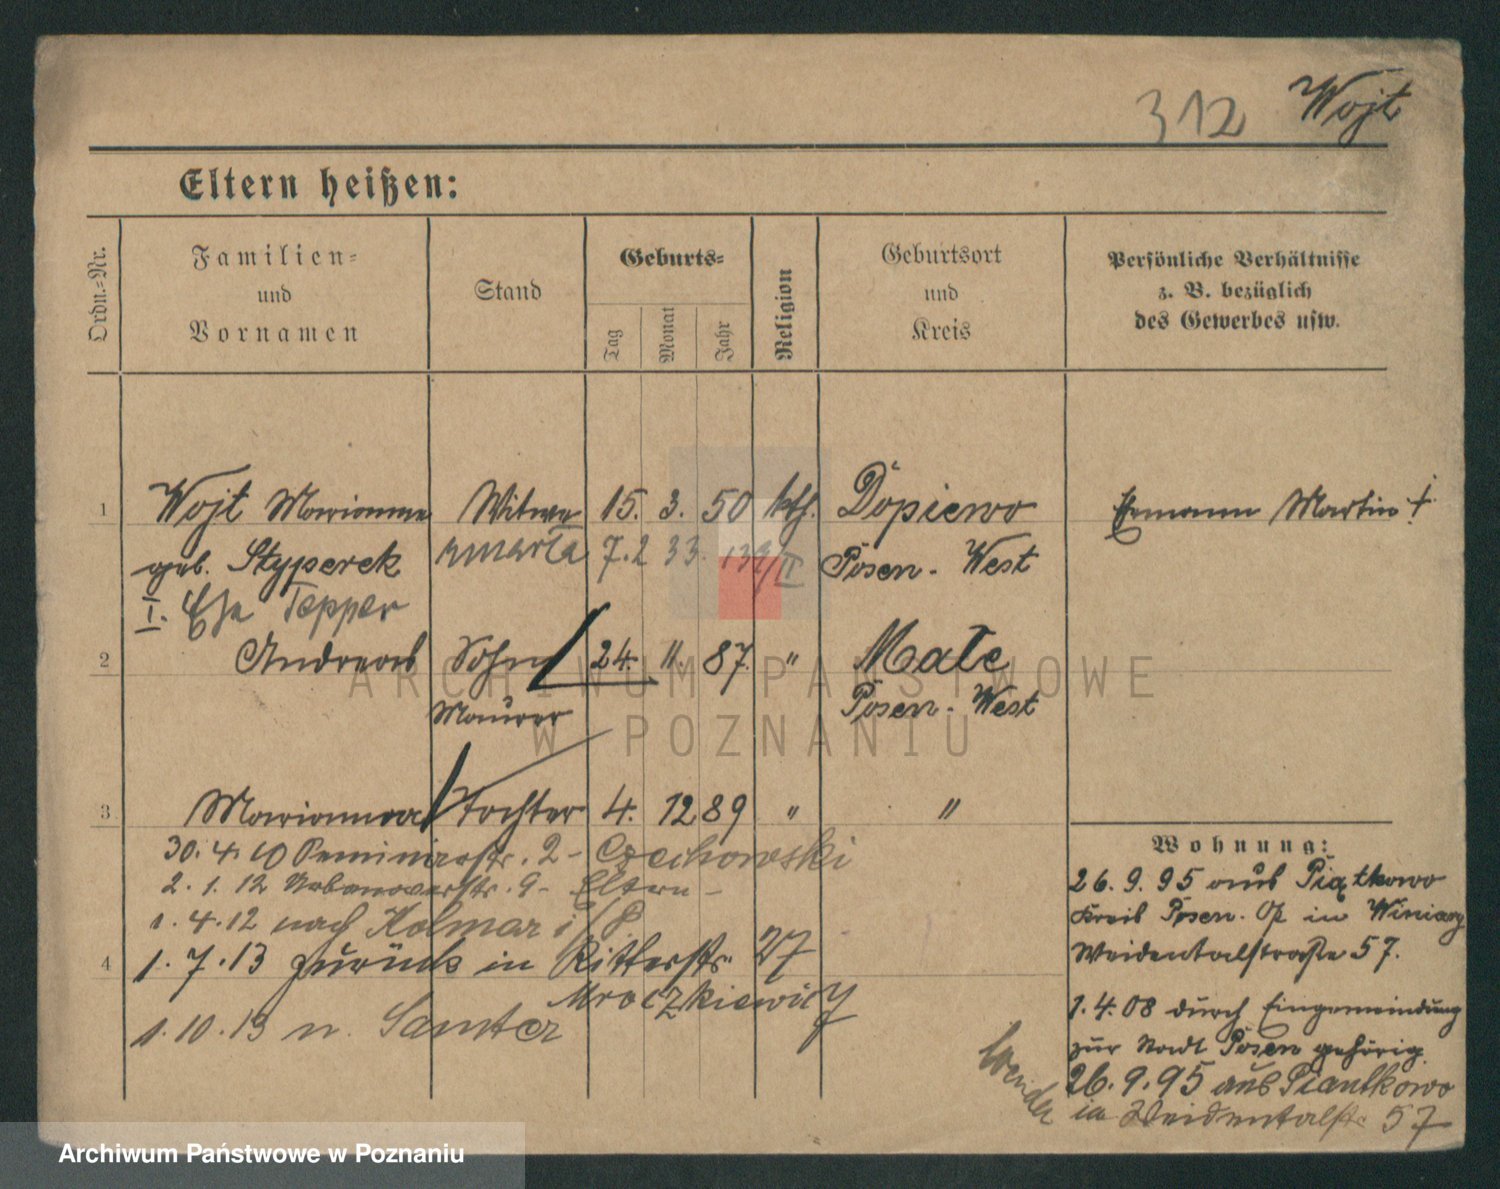 312 Wojt
Eltern heißen:
Ordn.=Nr.
Familien=
und
Vornamen
Stand
Geburts=
Tag
Monat
Jahr
Religion
Geburtsort
und
Kreis
Persönliche Verhältnisse
z. B. bezüglich
des Gewerbes usw.
1 Wojt Marianna Witwe 15. 3. 50 kth. Dopiewo Ehemann Martin †
geb. Styperek zmarła 7. 2 33. 132/II Posen. West
I. Ehe Tepper
2 Andreas Sohn 24. 11. 87. " Małe
Maurer Posen. West
3 Marianna Tochter 4. 12 89 " "
30. 4. 10 2 - Czechowski
2. 1. 12 Urbanowerstr. 9 - Eltern -
1. 4. 12 nach Kolmar i/P.
4 1. 7. 13 zurück in Ritterstr. 27
Mroczkiewicz
1. 10. 13 n. Samter
Wohnung:
26. 9. 95 aus Piątkowo
Kreis Posen. Ost in Winiary
Weidentalstraße 57.
1. 4. 08 durch Eingemeindung
zur Stadt Posen gehörig.
26. 9. 95 aus Piantkowo
in Weidentalstr. 57
Wenden
ARCHIWUM PAŃSTWOWE
W POZNANIU
Archiwum Państwowe w Poznaniu